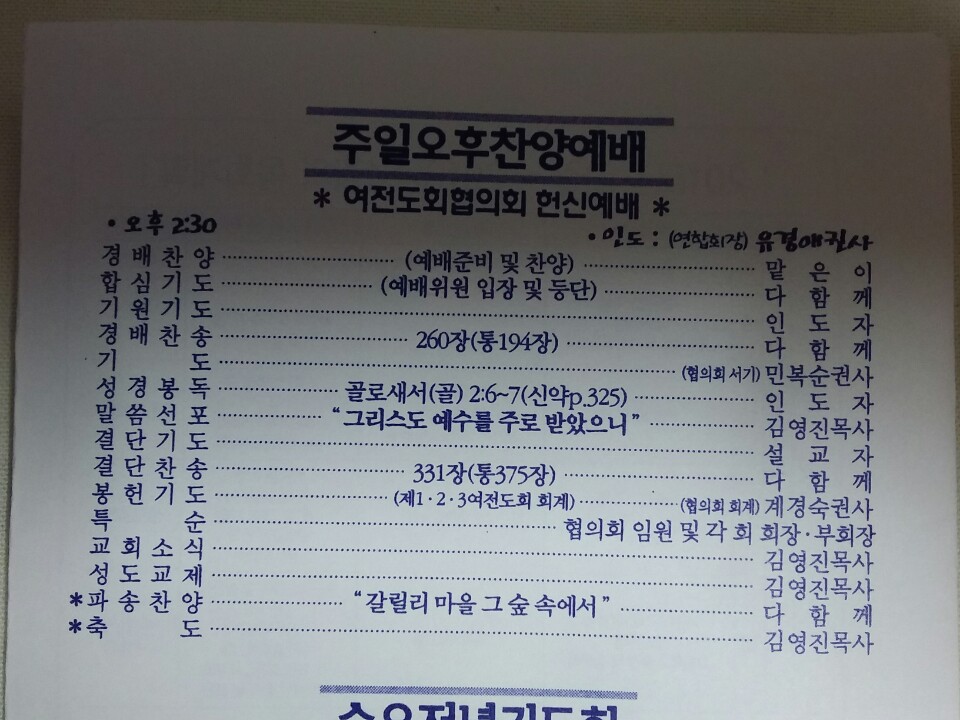 주일오후찬양예배
* 여전도회협의회 헌신예배 *
• 오후 2:30 • 인도 : (연합회장) 유경애권사
경배찬양 (예배준비 및 찬양) 맡은이
합심기도 (예배위원 입장 및 등단) 다함께
기원기도 인도자
경배찬송 260장(통194장) 다함께
기도 (협의회 서기) 민복순권사
성경봉독 골로새서(골) 2:6~7(신약p.325) 인도자
말씀선포 “그리스도 예수를 주로 받았으니” 김영진목사
결단기도 설교자
결단찬송 331장(통375장) 다함께
봉헌기도 (제1·2·3여전도회 회계) (협의회 회계) 계경숙권사
특순 협의회 임원 및 각 회 회장·부회장
교회소식 김영진목사
성도교제 김영진목사
*파송찬양 “갈릴리 마을 그 숲 속에서” 다함께
*축도 김영진목사
수요저녁기도회